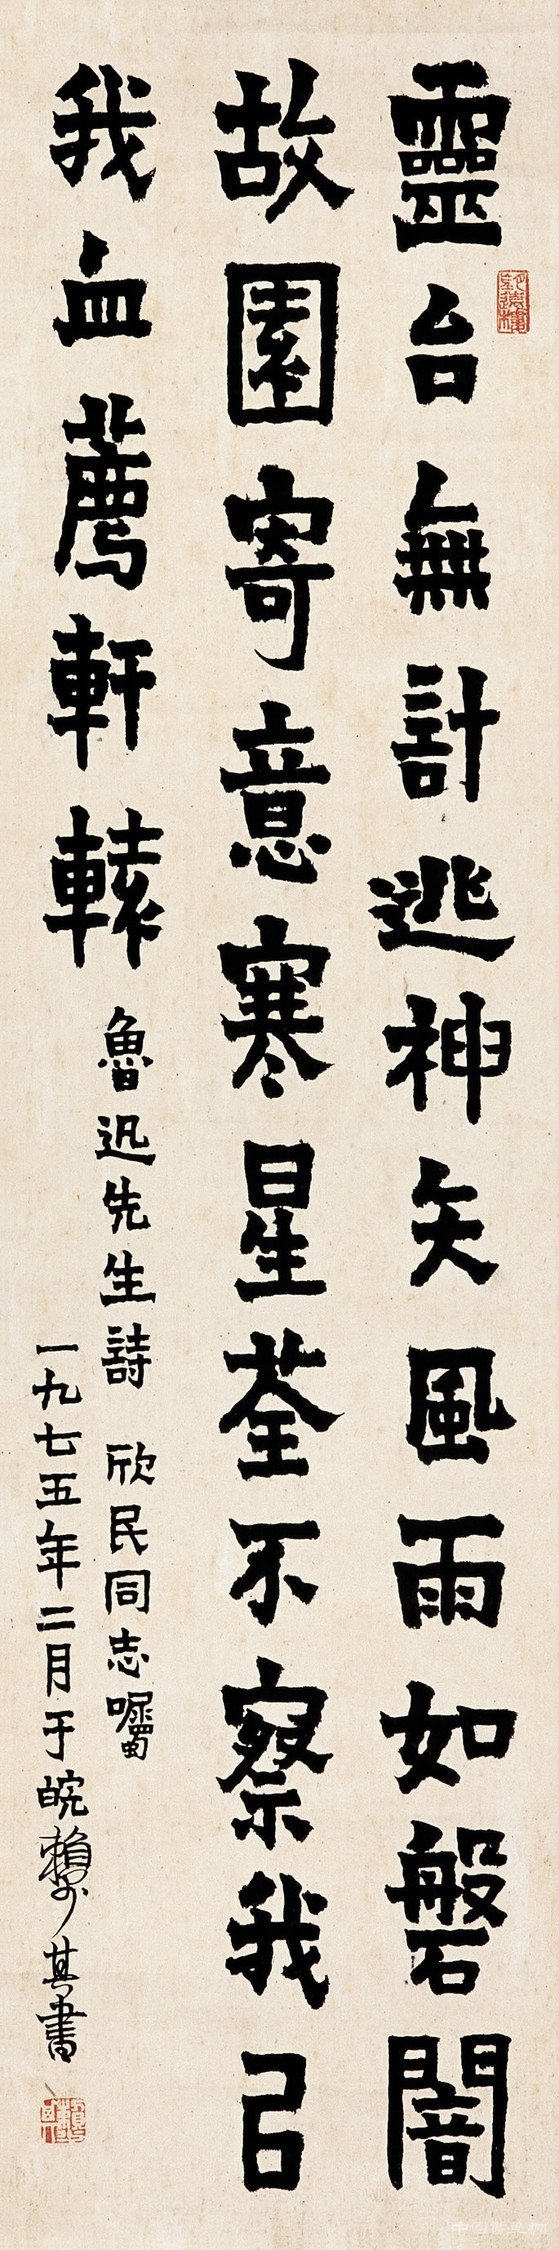 靈台無計逃神矢風雨如磐闇
故園寄意寒星荃不察我㠯
我血薦軒轅
魯迅先生詩 欣民同志囑
一九七五年二月于皖賴少其書